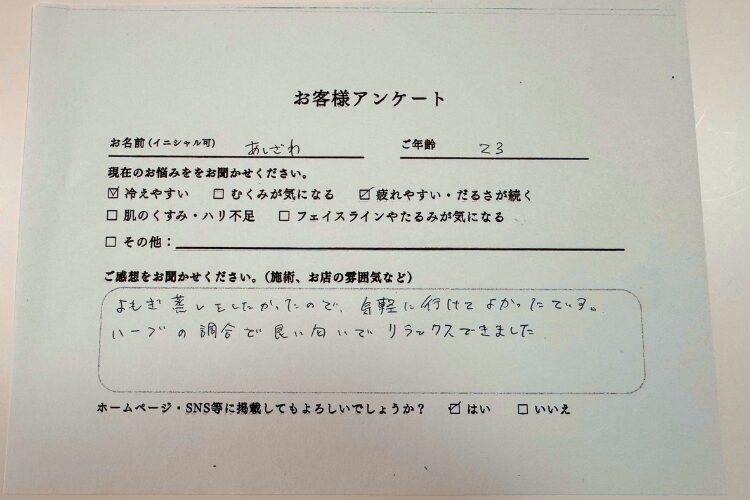 お客様アンケート
お名前(イニシャル可) あしざわ ご年齢 23
現在のお悩みををお聞かせください。
☑ 冷えやすい ☐ むくみが気になる ☑ 疲れやすい・だるさが続く
☐ 肌のくすみ・ハリ不足 ☐ フェイスラインやたるみが気になる
☐ その他：
ご感想をお聞かせください。(施術、お店の雰囲気など)
よもぎ蒸しをしたかったので、気軽に行けてよかったです。
ハーブの調合で良い匂いでリラックスできました
ホームページ・SNS等に掲載してもよろしいでしょうか？ ☑ はい ☐ いいえ